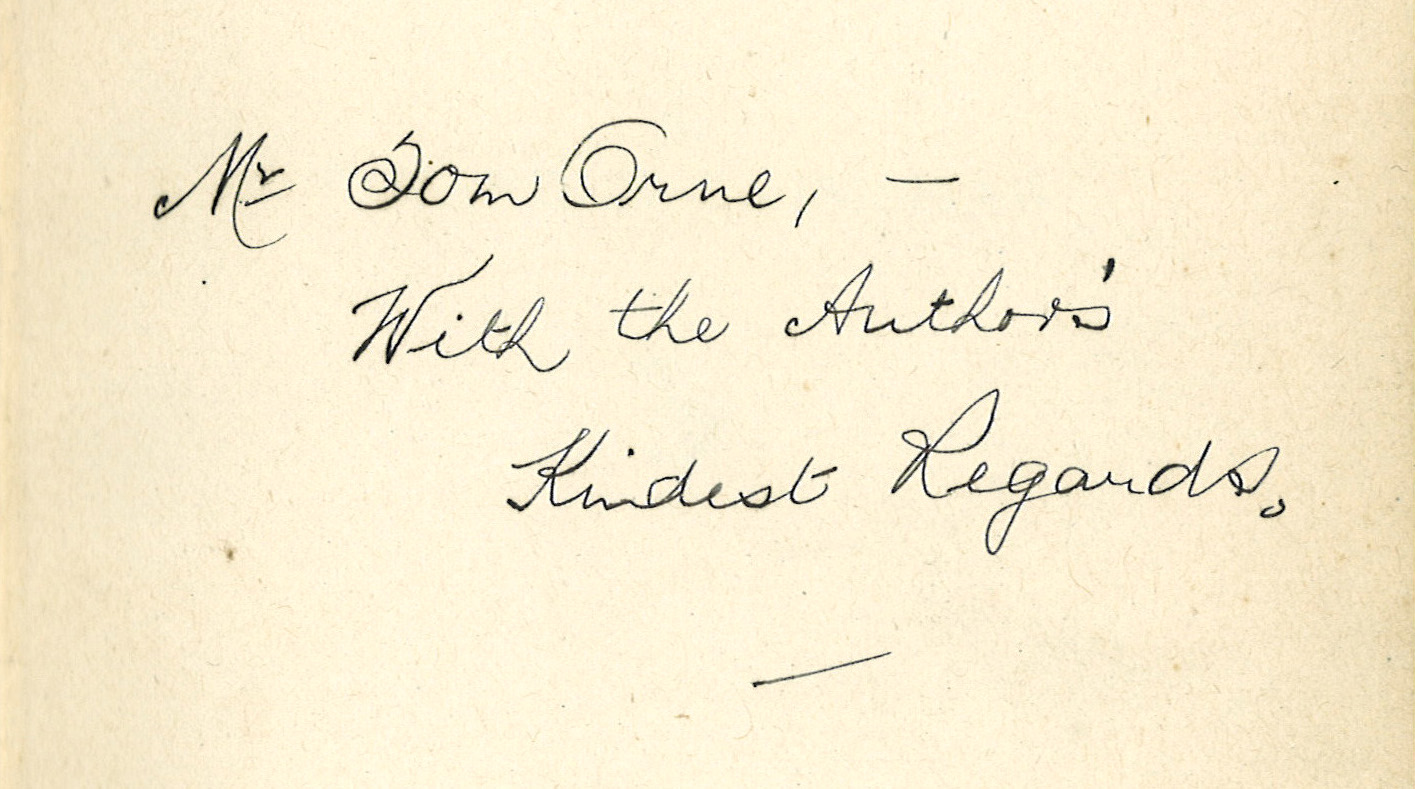 Mr Tom Orne, —
With the Author's
Kindest Regards.
—